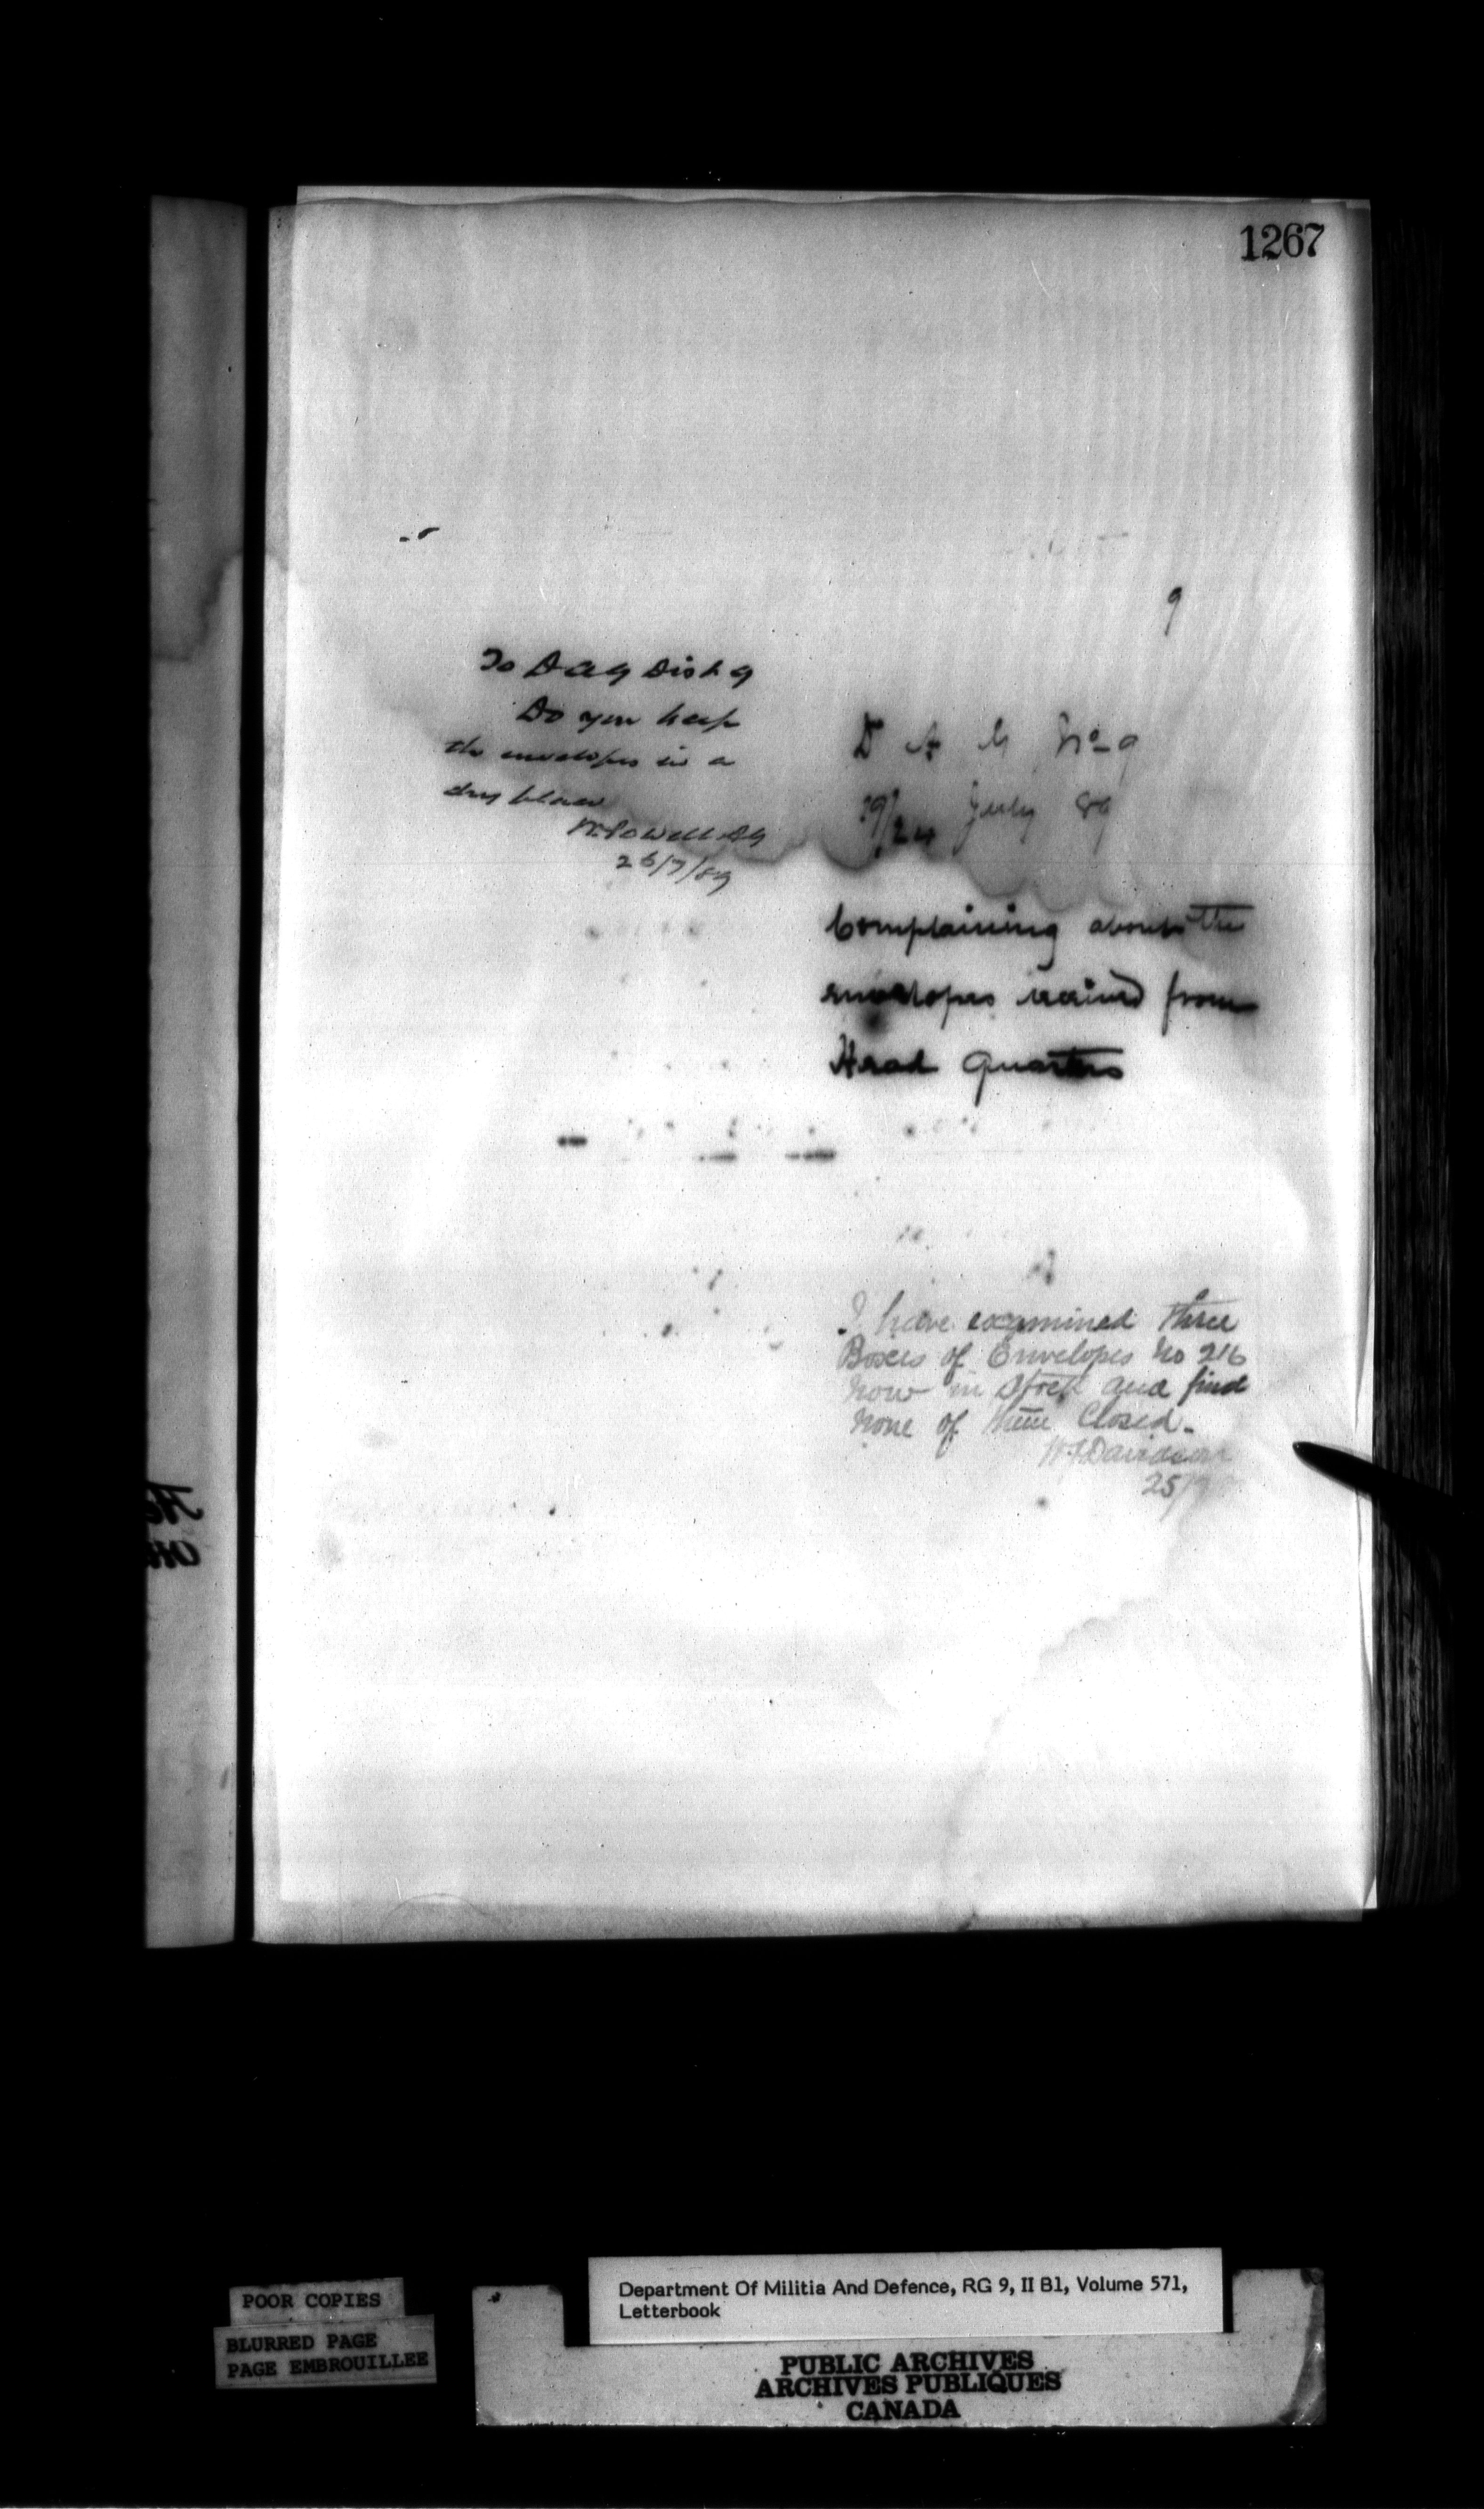 1267
9
To DAG Dist 9
Do you keep
the envelopes in a
dry place
W. Powell AG
26/7/89
D A G No 9
19/24 July 89
Complaining about the
envelopes received from
Head Quarters
I have examined three
Boxes of Envelopes No 216
now in Stock and find
none of them Closed.
Davidson
25/7
POOR COPIES
BLURRED PAGE
PAGE EMBROUILLEE
Department Of Militia And Defence, RG 9, II B1, Volume 571,
Letterbook
PUBLIC ARCHIVES
ARCHIVES PUBLIQUES
CANADA